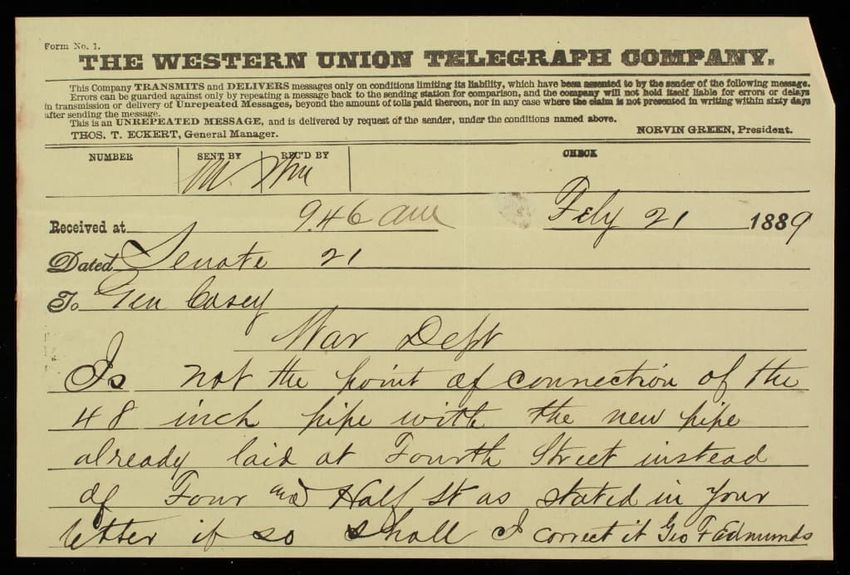 Form No. 1.
THE WESTERN UNION TELEGRAPH COMPANY.
This Company TRANSMITS and DELIVERS messages only on conditions limiting its liability, which have been assented to by the sender of the following message.
Errors can be guarded against only by repeating a message back to the sending station for comparison, and the company will not hold itself liable for errors or delays
in transmission or delivery of Unrepeated Messages, beyond the amount of tolls paid thereon, nor in any case where the claim is not presented in writing within sixty days
after sending the message.
This is an UNREPEATED MESSAGE, and is delivered by request of the sender, under the conditions named above.
THOS. T. ECKERT, General Manager. NORVIN GREEN, President.
NUMBER SENT BY REC'D BY CHECK
Received at 9.46 am Feby 21 1889
Dated Senate 21
To Gen Casey
War Dept
Is not the point of connection of the
48 inch pipe with the new pipe
already laid at Fourth Street instead
of Four and Half St as stated in your
letter if so shall I correct it Geo F Edmunds